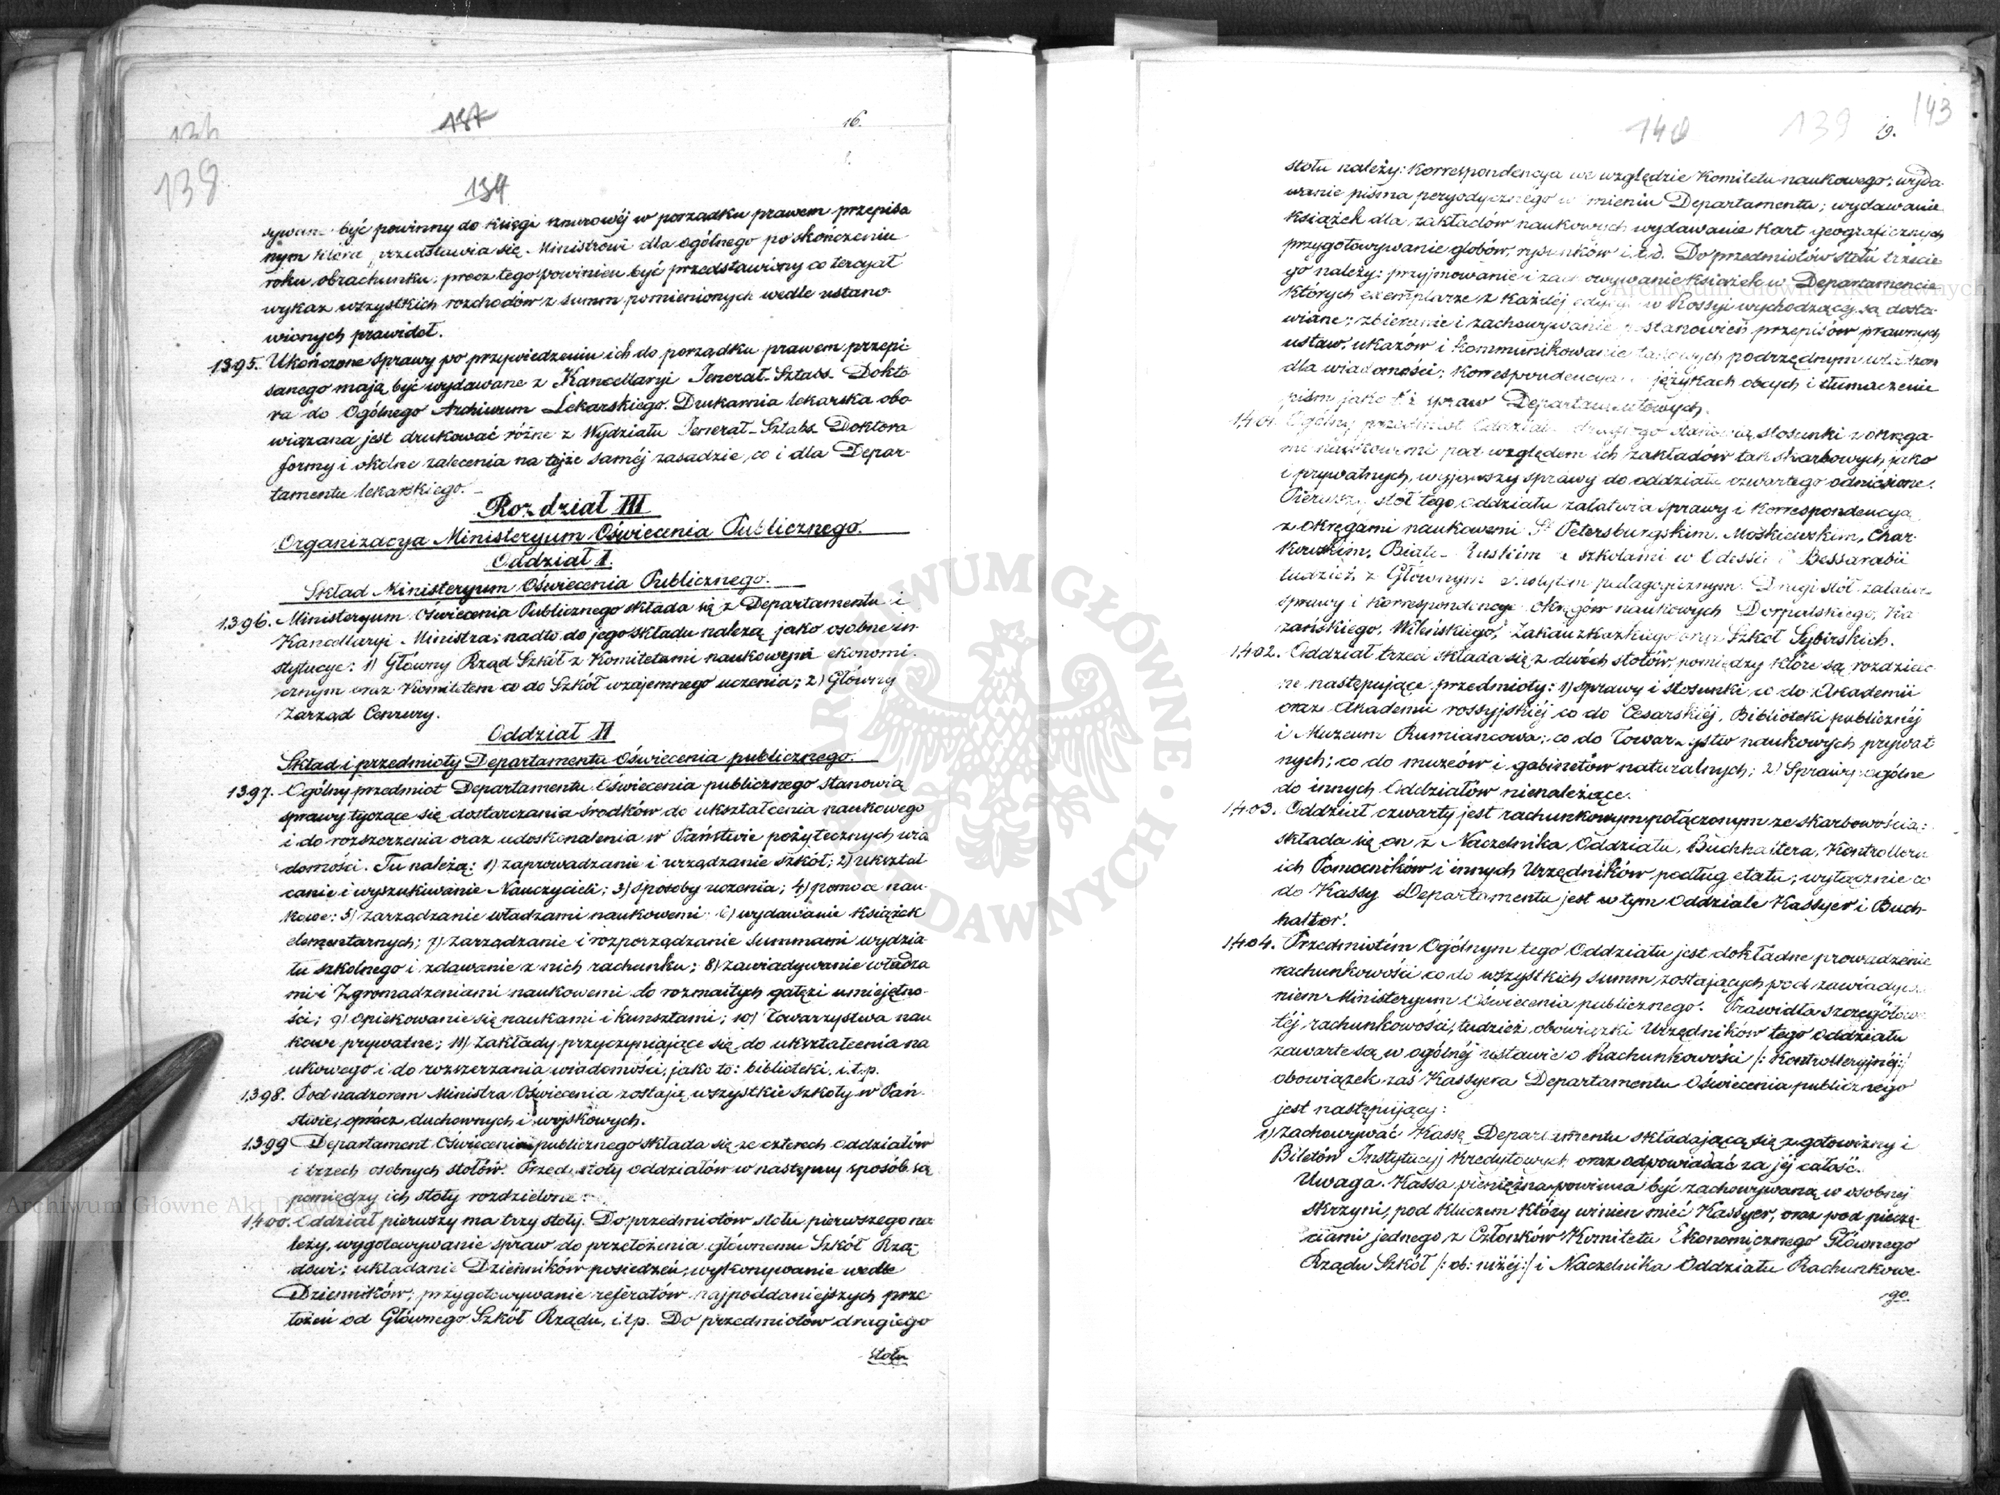 136
187
16.
138
134
sywane być powinny do księgi sznurowéj w porządku prawem przepisa
nym która przedstawia się Ministrowi dla ogólnego po skończeniu
roku obrachunku; precz tego powinien być przedstawiony co tercyał
wykaz wszystkich rozchodów z summ pomienionych wedle ustano-
wionych prawideł.
1395. Ukończone sprawy po przywiedzeniu ich do porządku prawem przepi
sanego mają być wydawane z Kancellaryi Jenerał-Sztabs Dokto
ra do Ogólnego Archiwum Lekarskiego. Drukarnia lekarska obo
wiązana jest drukować różne z Wydziału Jenerał-Sztabs Doktora
formy i okolne zalecenia na tejże saméj zasadzie, co i dla Depar-
tamentu lekarskiego.
Rozdział III
Organizacya Ministeryum Oświecenia Publicznego.
Oddział I.
Skład Ministeryum Oświecenia Publicznego.
1396. Ministeryum Oświecenia Publicznego składa się z Departamentu i
Kancellaryi Ministra; nadto do jego składu należą jako osobne in
stytucye: 1) Główny Rząd Szkół z Komitetami naukowym ekonomi-
cznym oraz Komitetem co do Szkół wzajemnego uczenia; 2) Główny
Zarząd Cenzury.
Oddział II
Skład i przedmioty Departamentu Oświecenia publicznego.
1397. Ogólny przedmiot Departamentu Oświecenia publicznego stanowią
sprawy tyczące się dostarczania środków do ukształcenia naukowego
i do rozszerzenia oraz udoskonalenia w Państwie pożytecznych wia
domości. Tu należą: 1) zaprowadzanie i urządzanie szkół; 2) ukształ
canie i wyszukiwanie Nauczycieli; 3) sposoby uczenia; 4) pomoce nau-
kowe; 5) zarządzanie władzami naukowemi; 6) wydawanie książek
elementarnych; 7) zarządzanie i rozporządzanie summami wydzia-
łu szkolnego i zdawanie z nich rachunku; 8) zawiadywanie władza
mi i Zgromadzeniami naukowemi do rozmaitych gałęzi umiejętno-
ści; 9) opiekowanie się naukami i kunsztami; 10) Towarzystwa nau
kowe prywatne; 11) Zakłady przyczyniające się do ukształcenia na
ukowego i do rozszerzania wiadomości, jako to: biblioteki, i.t.p.
1398. Pod nadzorem Ministra Oświecenia zostają wszystkie szkoły w Pań-
stwie, oprócz duchownych i wojskowych.
1399 Departament Oświecenia publicznego składa się ze czterech oddziałów
i trzech osobnych stołów. Przedmioty oddziałów w następny sposób są
pomiędzy ich stoły rozdzielone:
1400. Oddział pierwszy ma trzy stoły. Do przedmiotów stołu pierwszego na
leży, wygotowywanie spraw do przełożenia głównemu Szkół Rzą
dowi; układanie Dzienników posiedzeń, wykonywanie wedle
Dzienników; przygotowywanie referatów najpoddaniejszych prze
łożeń od Głównego Szkół Rządu, i.t.p. Do przedmiotów drugiego
stołu
143
140
139
19.
stołu należy: korrespondencya we względzie Komitetu naukowego; wyda
wanie pisma peryodycznego w imieniu Departamentu; wydawanie
książek dla zakładów naukowych wydawanie kart geograficznych
przygotowywanie globów, rysunków i.t.d. Do przedmiotów stołu trzecie
go należy: przyjmowanie i zachowywanie książek w Departamencie
których exemplarze z każdéj edycyi w Rossyi wychodzącéj są dosta-
wiane; zbieranie i zachowywanie postanowień przepisów prawnych
ustaw, ukazów i kommunikowanie takowych podrzędnym władzom
dla wiadomości; korrespondencya w językach obcych i tłumaczenie
pism jako téż spraw Departamentowych.
1401. Ogólny przedmiot Oddziału drugiego stanowią, stosunki z okręga-
mi naukowemi pod względem ich zakładów tak skarbowych, jako
i prywatnych, wyjąwszy sprawy do oddziału czwartego odniesione.
Pierwszy stół tego oddziału załatwia sprawy i korrespondencyą
z okręgami naukowemi St Petersburgskim, Moskiewskim, Char-
kowskim, Biało-Ruskim i szkołami w Odessie i Bessarabii
tudzież z Głównym Instytutem pedagogicznym. Drugi stół załatwia
sprawy i korrespondencye okręgów naukowych Dorpatskiego, Ka
zańskiego, Wileńskiego, Zakaukazkiego oraz Szkół Sybirskich.
1402. Oddział trzeci składa się z dwóch stołów, pomiędzy które są rozdzielo
ne następujące przedmioty: 1) sprawy i stosunki, co do Akademii
oraz Akademii rossyjskiéj co do Cesarskiéj, Biblioteki publicznéj
i Muzeum Rumiancowa; co do Towarzystw naukowych prywat
nych; co do muzeów i gabinetów naturalnych; 2) Sprawy ogólne
do innych Oddziałów nienależące.
1403. Oddział czwarty jest rachunkowym połączonym ze skarbowością;
składa się on z Naczelnika Oddziału, Buchhaltera, Kontrollera
ich Pomocników i innych Urzędników podług etatu; wyłącznie co
do Kassy Departamentu jest w tym Oddziale Kassyer i Buch-
halter.
1404. Przedmiotem Ogólnym tego Oddziału jest dokładne prowadzenie
rachunkowości co do wszystkich summ zostających pod zawiadywa
niem Ministeryum Oświecenia publicznego. Prawidła szczegóło
téj rachunkowości, tudzież obowiązki Urzędników tego oddziału
zawarte są w ogólnéj ustawie o Rachunkowości /: Kontrolleryjnéj:/
obowiązek zaś Kassyera Departamentu Oświecenia publicznego
jest następujący:
1) Zachowywać Kassę Departamentu składającą się z gotowizny i
Biletów Instytucyj kredytowych oraz odpowiadać za jéj całość.
Uwaga. Kassa pieniężna powinna być zachowywaną w osobnéj
skrzyni, pod kluczem który winien mieć Kassyer, oraz pod pieczę-
ciami jednego z Członków Komitetu Ekonomicznego Głównego
Rządu Szkół /: ob: niżéj :/ i Naczelnika Oddziału Rachunkowe-
go.
ARCHIWUM GŁÓWNE AKT DAWNYCH
Archiwum Główne Akt Dawnych
Archiwum Główne Akt Dawnych